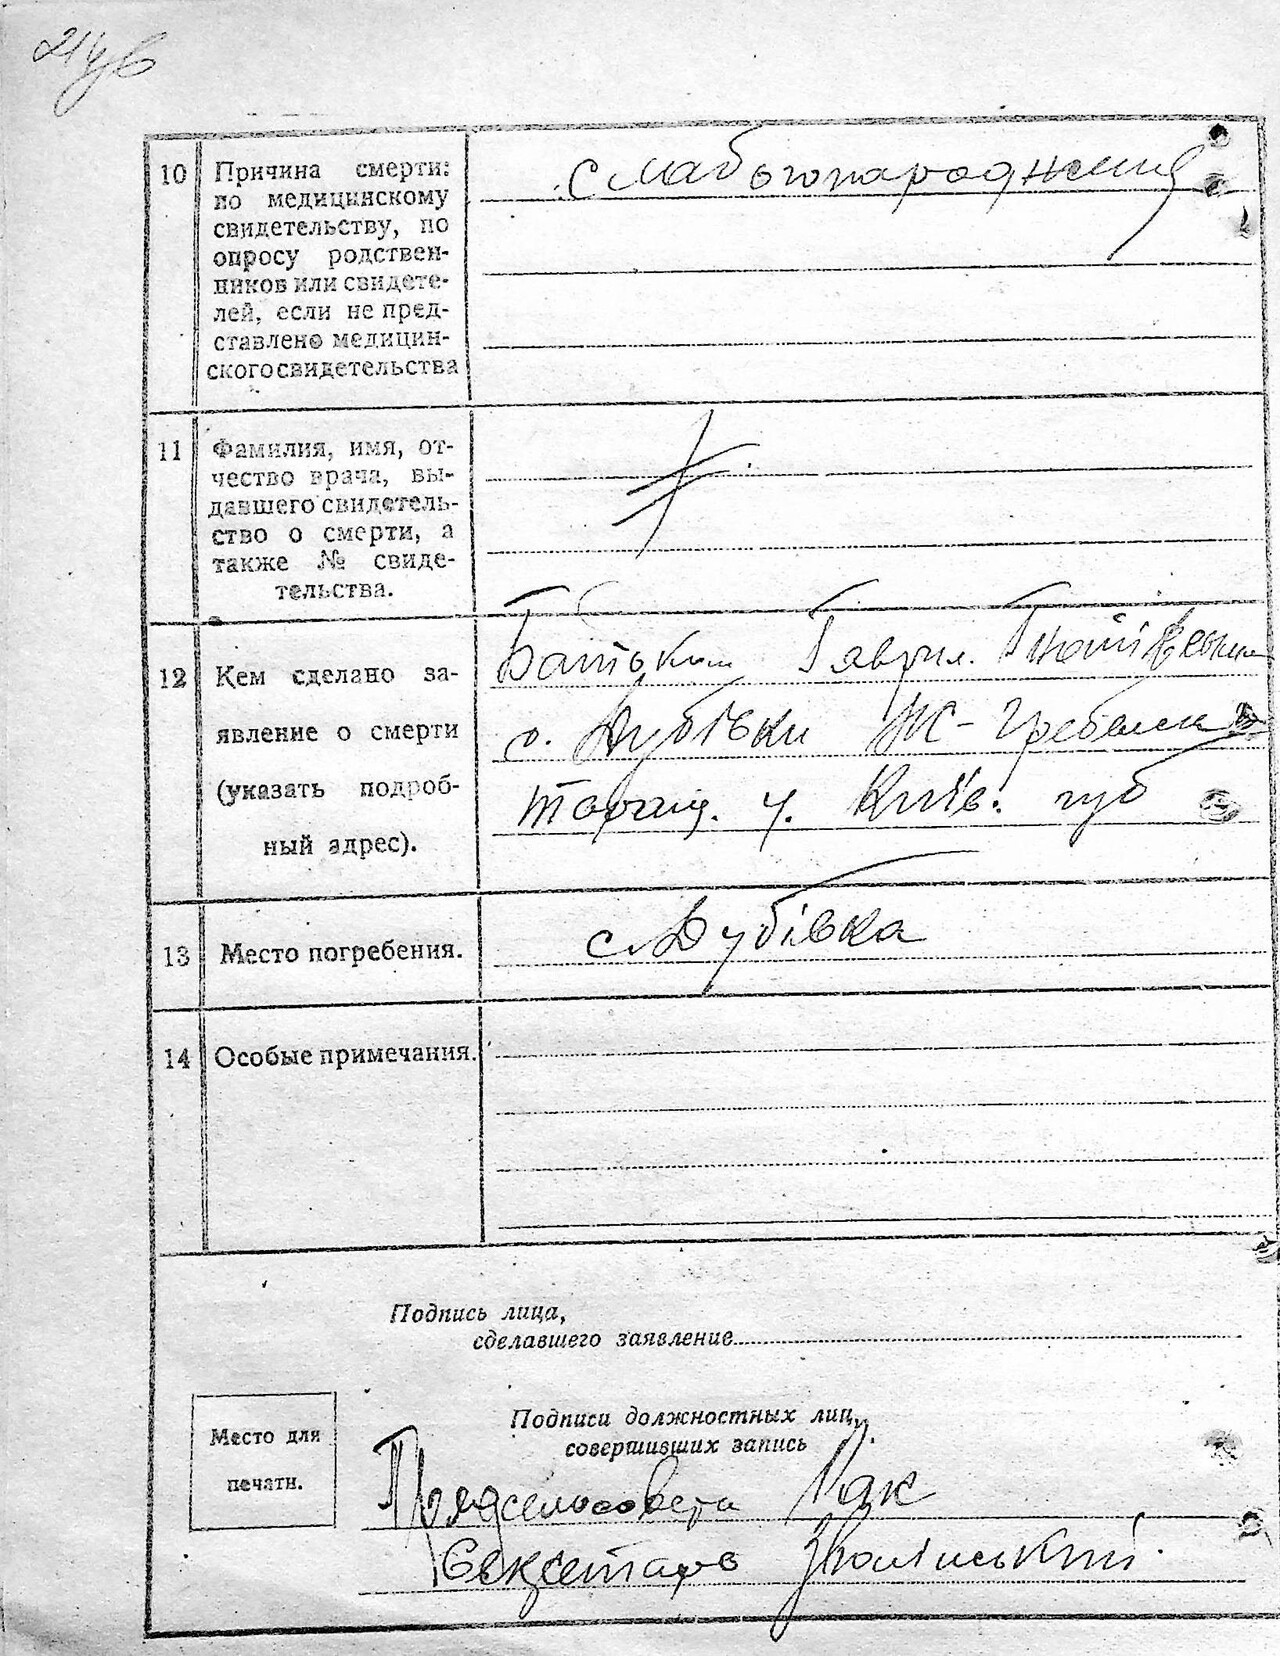 10 Причина смерти: слабонарождений
по медицинскому
свидетельству, по
опросу родствен-
ников или свидете-
лей, если не пред-
ставлено медицин-
ского свидетельства
11 Фамилия, имя, от-
чество врача, вы-
давшего свидетель-
ство о смерти, а
также № свиде-
тельства.
12 Кем сделано за-
явление о смерти
(указать подроб-
ный адрес).
Батьком Гаврил.
с. Дубівки
Таращ. у. Київ. губ
13 Место погребения. с. Дубівка
14 Особые примечания.
Подпись лица,
сделавшего заявление
Место для
печати.
Подписи должностных лиц,
совершивших запись
Предсельсовета Гак
Секретарь